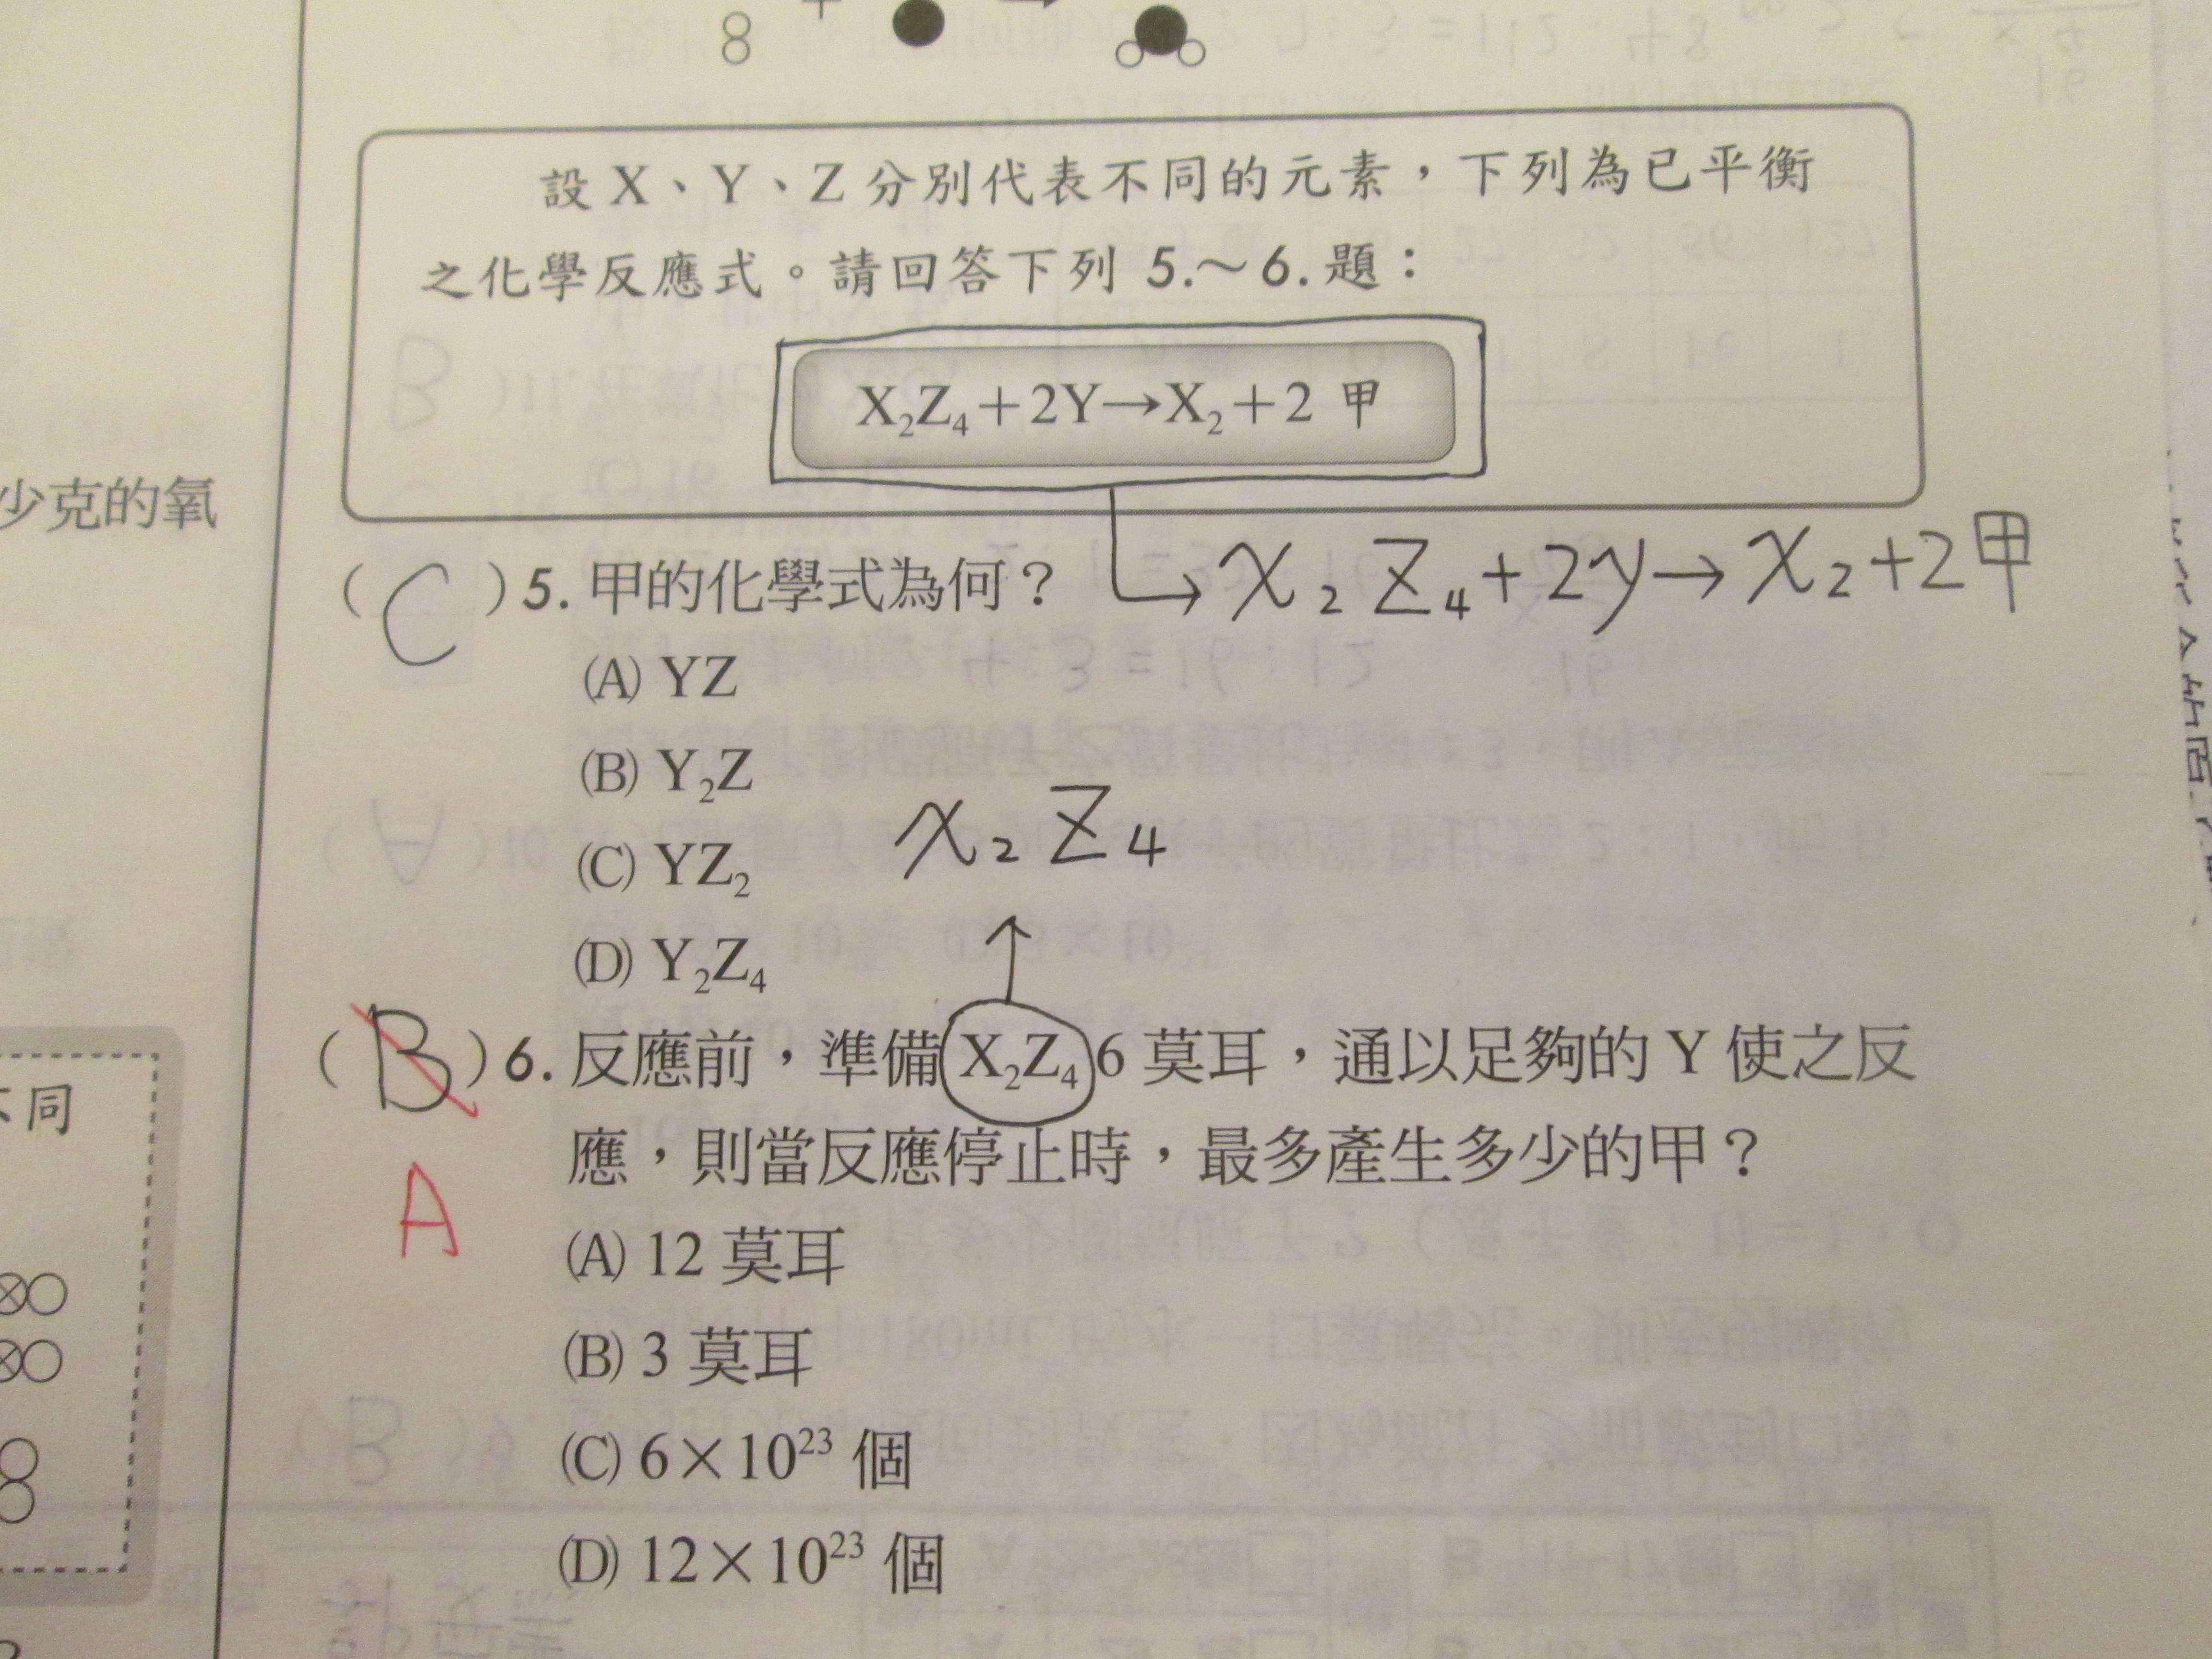 設 X、Y、Z 分別代表不同的元素，下列為已平衡
之化學反應式。請回答下列 5.～6. 題：
X₂Z₄＋2Y→X₂＋2 甲
少克的氧
→ X₂Z₄+2y→X₂+2甲
( C ) 5. 甲的化學式為何？
(A) YZ
(B) Y₂Z
(C) YZ₂
X₂Z₄
(D) Y₂Z₄
( B ) 6. 反應前，準備 X₂Z₄ 6 莫耳，通以足夠的 Y 使之反
應，則當反應停止時，最多產生多少的甲？
同
A
(A) 12 莫耳
(B) 3 莫耳
(C) 6×10²³ 個
(D) 12×10²³ 個